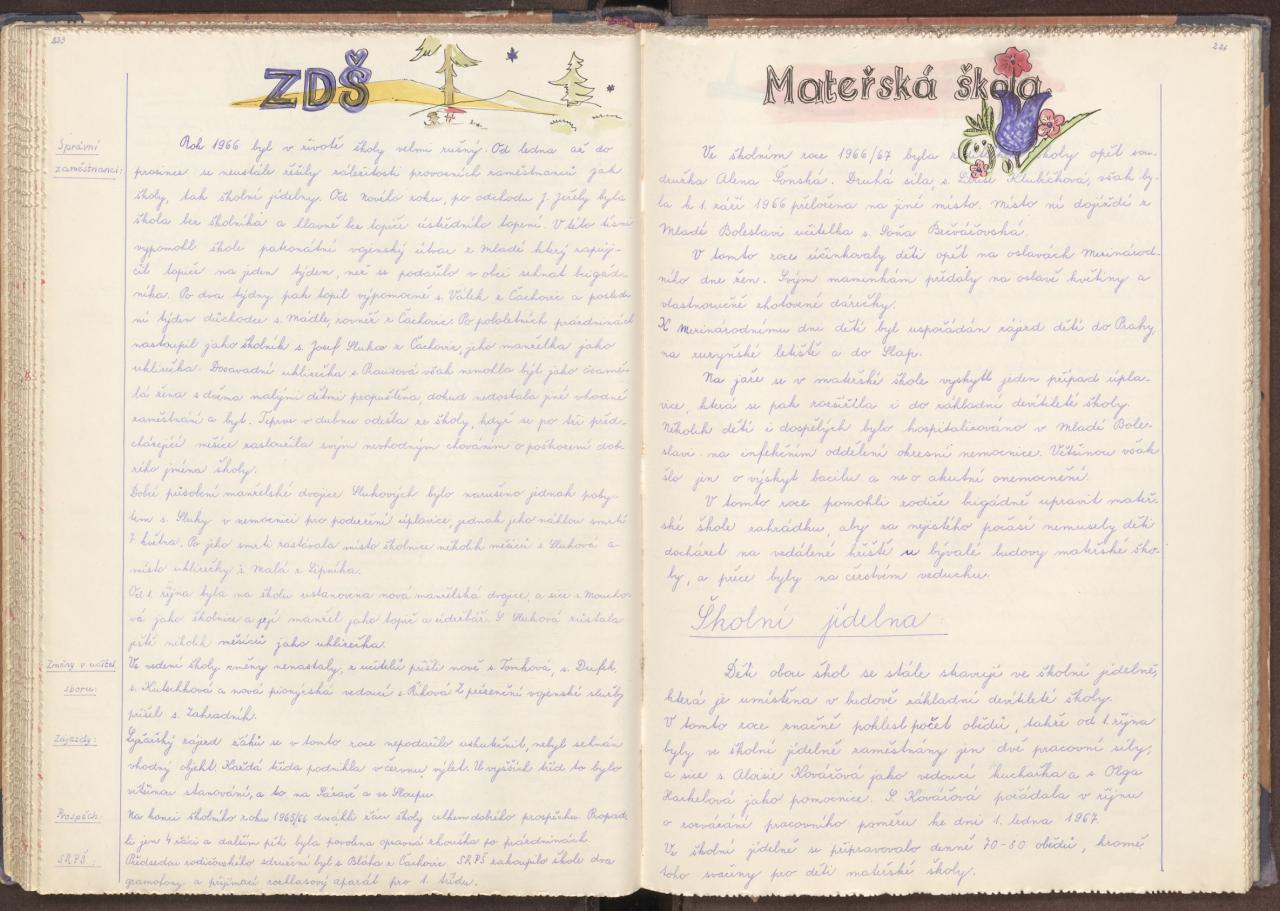 223
ZDŠ
Správní
zaměstnanci:
Rok 1966 byl v životě školy velmi rušný. Od ledna až do
prosince se neustále řešily záležitosti provozních zaměstnanců jak
školy, tak školní jídelny. Od Nového roku, po odchodu J. Ježły byla
škola bez školníka a hlavně bez topiče ústředního topení. V této tísni
vypomohl škole patronátní vojenský útvar z Mladé který zapůj-
čil topiče na jeden týden, než se podařilo v obci sehnat brigád-
níka. Po dva týdny pak topil výpomocně s. Válek z Čachovic a posled-
ní týden důchodce s. Mádle, rovněž z Čachovic. Po pololetních prázdninách
nastoupil jako školník s. Josef Sluka z Čachovic, jeho manželka jako
uklizečka. Dosavadní uklizečka s. Rausová však nemohla být jako osamě-
lá žena s dvěma malými dětmi propuštěna, dokud nedostala jiné vhodné
zaměstnání a byt. Teprve v dubnu odešla ze školy, když se po tři před-
cházející měsíce zasloužila svým nevhodným chováním o poškození dob-
rého jména školy.
Dobré působení manželské dvojice Slukových bylo narušeno jednak poby-
tem s. Sluky v nemocnici pro podezření úplavice, jednak jeho náhlou smrtí
7. května. Po jeho smrti zastávala místo školnice několik měsíců s. Sluková a
místo uklizečky s. Malá z Lipníka.
Od 1. října byla na školu ustanovena nová manželská dvojice, a sice s. Moucho-
vá jako školnice a její manžel jako topič a údržbář. S. Sluková zůstala
ještě několik měsíců jako uklizečka.
Změny v učitel.
sboru:
Ve vedení školy změny nenastaly, z učitelů přišli nově s. Tomková, s. Dufek,
s. Kutschková a nová pionýrská vedoucí s. Říhová. Z presenční vojenské služby
přišel s. Zahradník.
Zájezdy:
Lyžařský zájezd žáků se v tomto roce nepodařilo uskutečnit, nebyl sehnán
vhodný objekt. Každá třída podnikla v červnu výlet. U vyšších tříd to bylo
většinou stanování, a to na Sázavě a ve Sloupu.
Prospěch:
Na konci školního roku 1965/66 dosáhli žáci školy celkem dobrého prospěchu. Propad-
li jen 4 žáci a dalším pěti byla povolena opravná zkouška po prázdninách.
SRPŠ:
Předsedou rodičovského sdružení byl s. Bláha z Čachovic. SRPŠ zakoupilo škole dva
gramofony a přijímací rozhlasový aparát pro 1. třídu.
224
Mateřská škola
Ve školním roce 1966/67 byla školy opět sou-
družka Alena Lonská. Druhá síla, s. Klubíčková, však by-
la k 1. září 1966 přeložena na jiné místo. Místo ní dojíždí z
Mladé Boleslavi učitelka s. Soňa Bečvářovská.
V tomto roce účinkovaly děti opět na oslavách Mezinárod-
ního dne žen. Svým maminkám předaly na oslavě květiny a
vlastnoručně zhotovené dárečky.
K Mezinárodnímu dni dětí byl uspořádán zájezd dětí do Prahy,
na ruzyňské letiště a do Slap.
Na jaře se v mateřské škole vyskytl jeden případ úpla-
vice, která se pak rozšířila i do základní devítileté školy.
Několik dětí i dospělých bylo hospitalizováno v Mladé Bole-
slavi na infekčním oddělení okresní nemocnice. Většinou však
šlo jen o výskyt bacilu a ne o akutní onemocnění.
V tomto roce pomohli rodiče brigádně upravit mateř-
ské škole zahrádku, aby za nejistého počasí nemusely děti
docházet na vzdálené hřiště u bývalé budovy mateřské ško-
ly, a přece byly na čerstvém vzduchu.
Školní jídelna
Děti obou škol se stále stravují ve školní jídelně,
která je umístěna v budově základní devítileté školy.
V tomto roce značně poklesl počet obědů, takže od 1. října
byly ve školní jídelně zaměstnány jen dvě pracovní síly,
a sice s. Aloisie Kovářová jako vedoucí kuchařka a s. Olga
Hachelová jako pomocnice. S. Kovářová požádala v říjnu
o rozvázání pracovního poměru ke dni 1. ledna 1967.
Ve školní jídelně se připravovalo denně 70-80 obědů, kromě
toho svačiny pro děti mateřské školy.